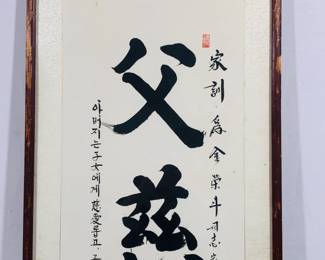 家訓 爲 金榮斗 同志
父慈
아버지는 子女에게 慈愛롭고